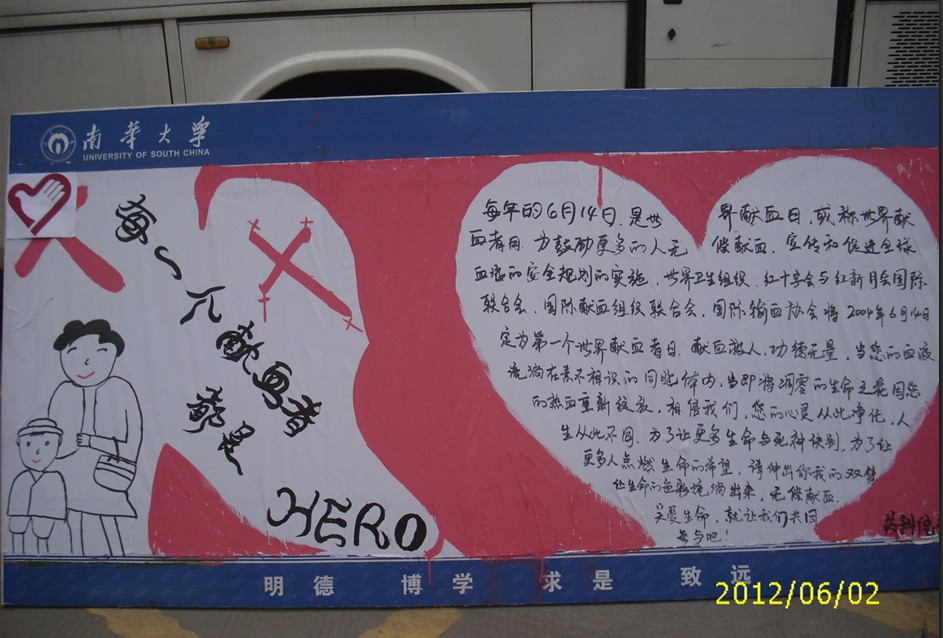 南華大学
UNIVERSITY OF SOUTH CHINA
每一个献血者
都是
HERO
每年的6月14日,是世界献血日,或称世界献
血者日.为鼓励更多的人无偿献血,宣传和促进全球
血液的安全规划的实施,世界卫生组织,红十字会与红新月会国际
联合会,国际献血组织联合会,国际输血协会将2004年6月14日
定为第一个世界献血者日.献血救人,功德无量,当您的血液
流淌在素不相识的同胞体内,当即将凋零的生命之花因您
的热血重新绽放,相信我们,您的心灵从此净化,人
生从此不同.为了让更多生命与死神诀别,为了让
更多人点燃生命的希望,请伸出你我的双臂
让生命的色彩流淌出来,无偿献血
关爱生命,就让我们共同
参与吧!
药科院
明德 博学 求是 致远
2012/06/02